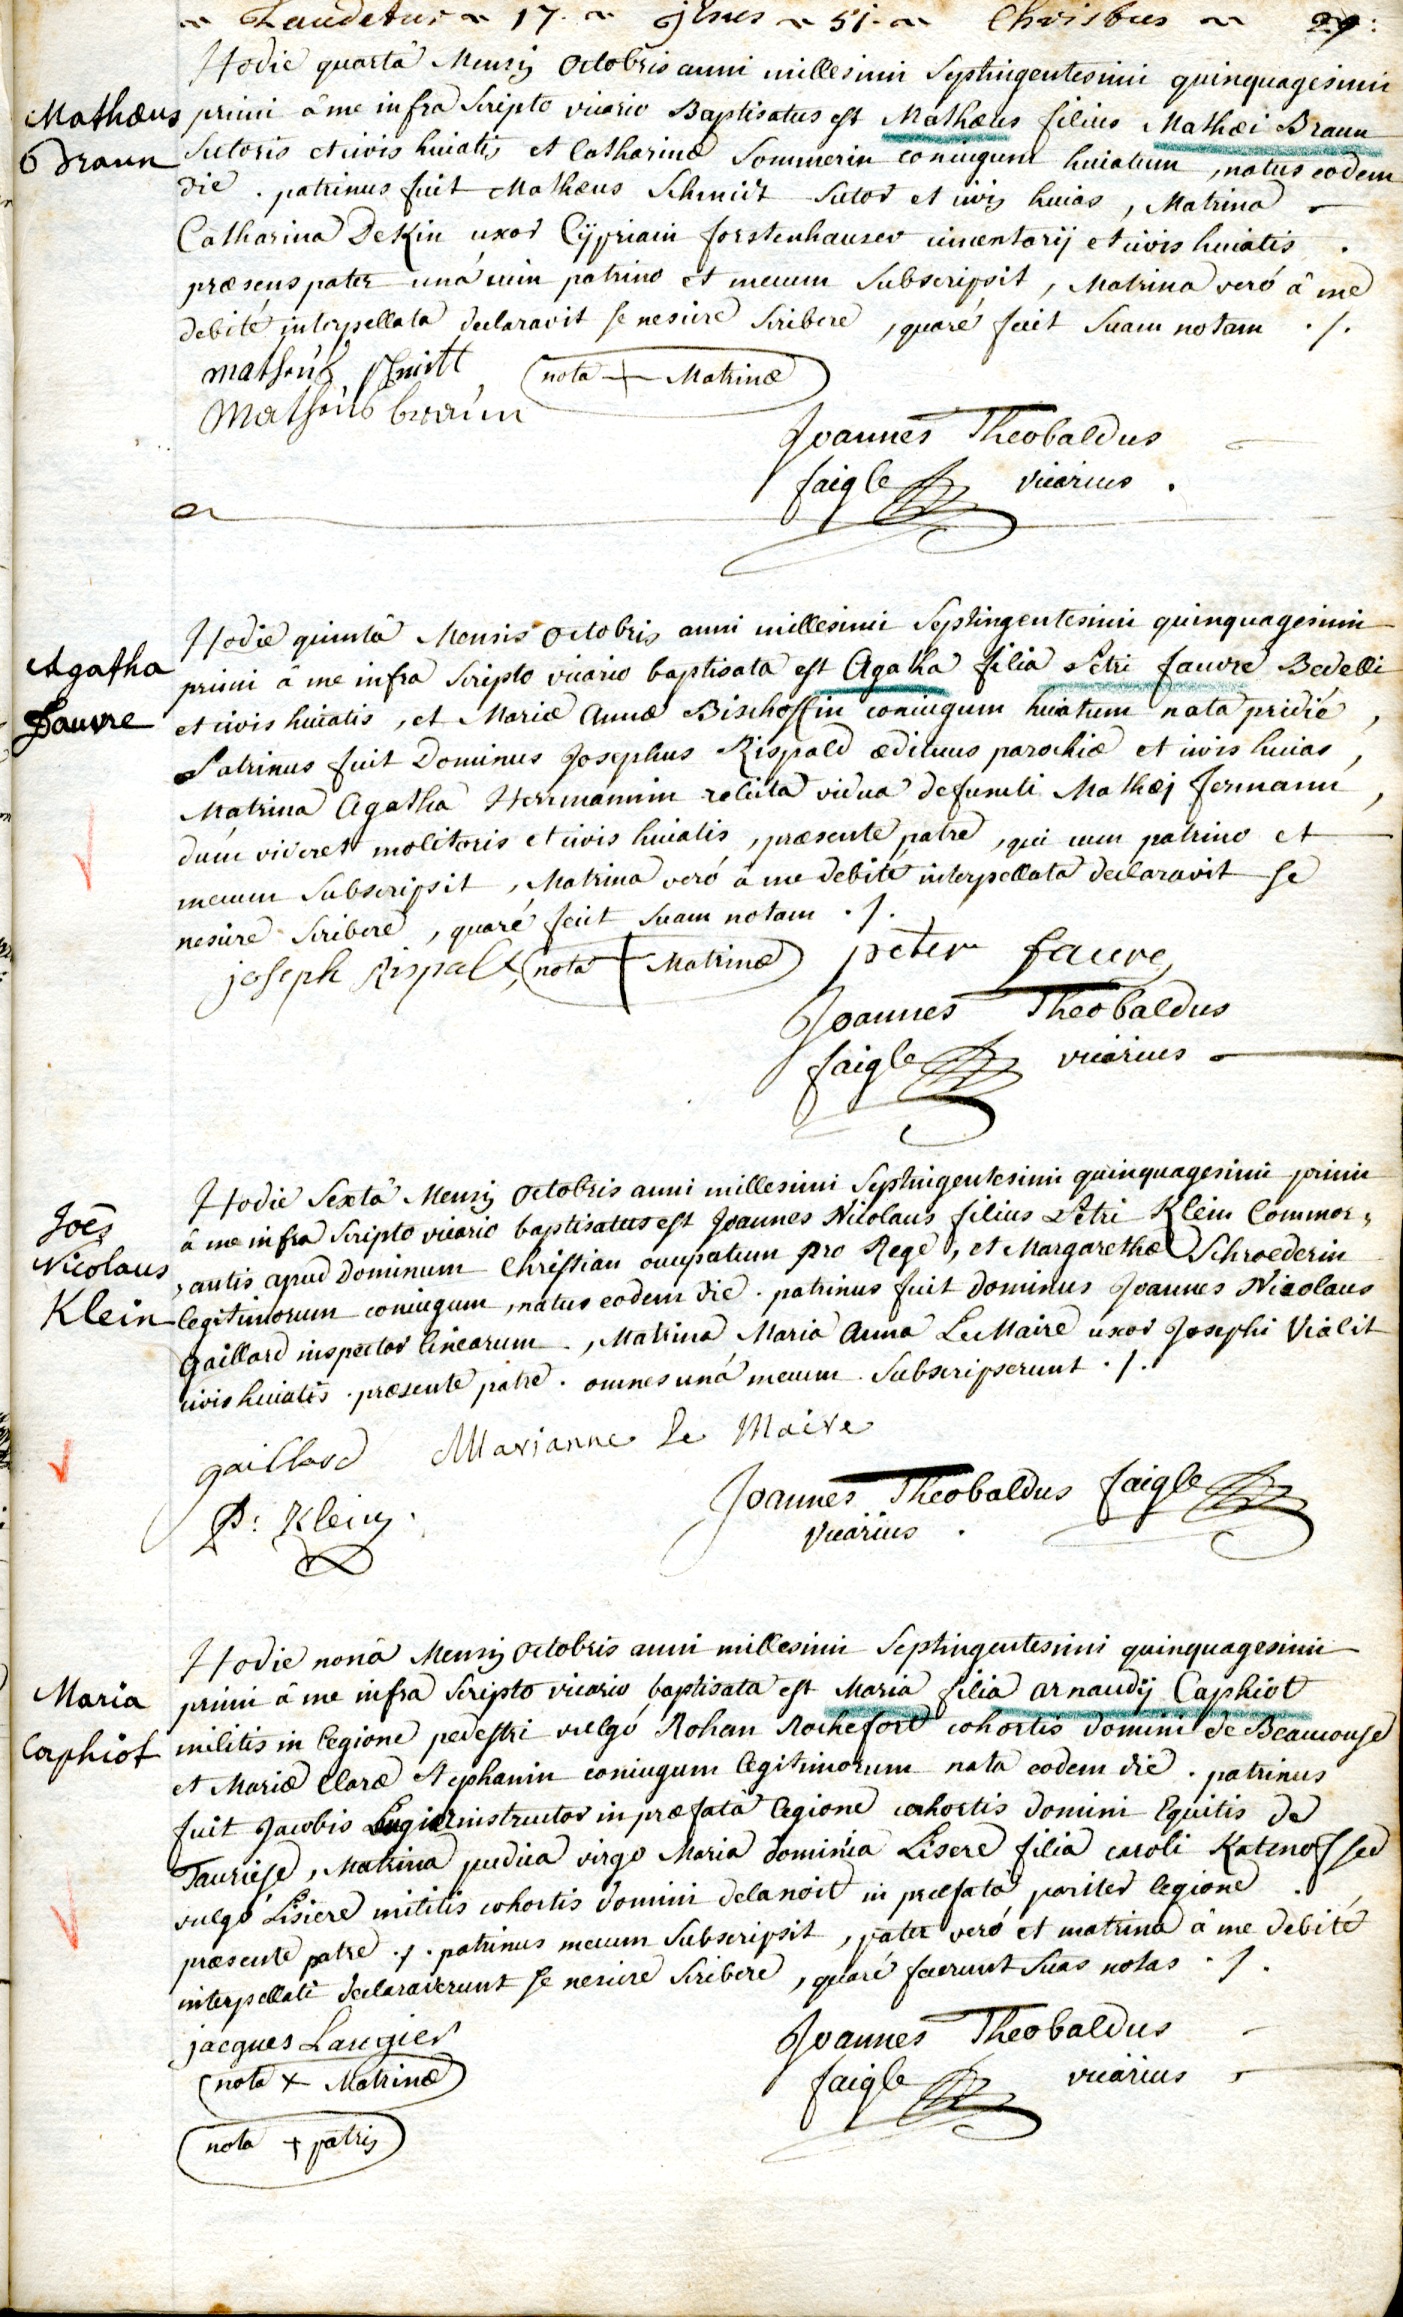 Laudetur 17. jesus 51. Christus 29.
Mathæus
Braun
Hodie quartâ Mensis Octobris anni millesimi Septingentesimi quinquagesimi
primi â me infra Scripto vicario Baptisatus est Mathæus filius Mathæi Braun
Sutoris et civis huiatis et Catharinæ Sommerin coniugum huiatum, natus eodem
die. patrinus fuit Mathæus Schmidt Sutor et civis huias, Matrina
Catharina Dekin uxor Cypriani forstenhauser cimentarij et civis huiatis.
præsens pater unâ cum patrino et mecum Subscripsit, Matrina veró â me
debité interpellata declaravit se nescire Scribere, quaré fecit Suam notam ./.
mathæus schmitt nota + Matrinæ
Mathæus braun
Joannes Theobaldus
faigle vicarius.
Agatha
Fauvre
Hodie quintâ Mensis Octobris anni millesimi Septingentesimi quinquagesimi
primi â me infra Scripto vicario baptisata est Agatha filia Petri fauvre Bedelli
et civis huiatis, et Mariæ Annæ Bischoffin coniugum huiatum nata pridié,
Patrinus fuit Dominus Josephus Rispald ædituus parochiæ et civis huias,
Matrina Agatha Herrmannin relicta vidua defuncti Mathæj fermann,
dum viveret molitoris et civis huiatis, præsente patre, qui cum patrino et
mecum Subscripsit, Matrina veró â me debité interpellata declaravit se
nescire Scribere, quaré fecit Suam notam ./.
joseph Rispalt, nota + Matrinæ peter faure
Joannes Theobaldus
faigle vicarius
Joēs
Nicolaus
Klein
Hodie Sextâ Mensis Octobris anni millesimi Septingentesimi quinquagesimi primi
â me infra Scripto vicario baptisatus est Joannes Nicolaus filius Petri Klein Commor,
,antis apud dominum Christian occupatum pro Rege, et Margarethæ Schroederin
legitimorum coniugum, natus eodem die. patrinus fuit dominus Joannes Nicolaus
Gaillard inspector linearum., Matrina Maria Anna LeMaire uxor Josephi Vialit
civis huiatis. præsente patre. omnes unâ mecum Subscripserunt ./.
gaillard Marianne Le Maire
P: Klein.
Joannes Theobaldus faigle
vicarius.
Maria
Caphiot
Hodie nonâ Mensis Octobris anni millesimi Septingentesimi quinquagesimi
primi â me infra Scripto vicario baptisata est Maria filia arnaudij Caphiot
militis in legione pedestri vulgó Rohan Rochefort cohortis domini de Beaucouse
et Mariæ Claræ Stephanin coniugum legitimorum nata eodem die. patrinus
fuit Jacobis instructor in præfatâ legione cohortis domini Equitis de
Tauriese, Matrina pudica virgo Maria dominica Lisere filia caroli
vulgó Lisiere militis cohortis domini delanoit in præfatâ pariter legione.
præsente patre ./. patrinus mecum Subscripsit, pater veró et matrina â me debité
interpellati declaraverunt se nescire Scribere, quaré fecerunt Suas notas ./.
jacques Laugier
nota + Matrinæ
nota + patris
Joannes Theobaldus
faigle vicarius